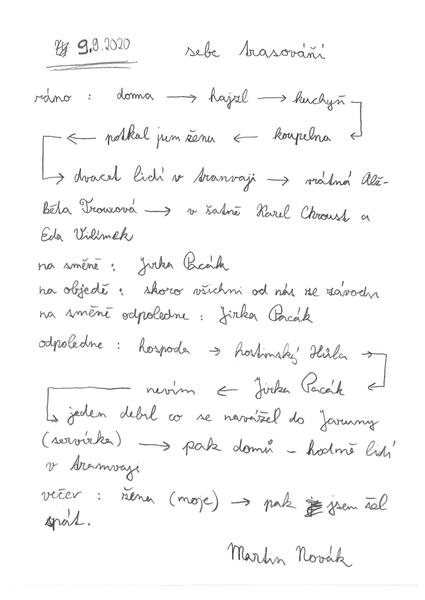 9.9.2020 sebe trasování
ráno : doma → hajzl → kuchyň
← potkal jsem ženu ← koupelna
→ dvacet lidí v tranvaji → vrátná Alž-
Běta Trouxová → v šatně Karel Chroust a
Eda Vilímek
na směně : Jirka Pacák
na objedě : skoro všichni od nás ze závodu
na směně odpoledne : Jirka Pacák
odpoledne : hospoda → hostinský Hůla →
nevím ← Jirka Pacák
→ jeden debil co se navážel do Jaruny
(servírka) → pak domů – hodně lidí
v tramvaji
večer : žena (moje) → pak jsem šel
spát.
Martin Novák